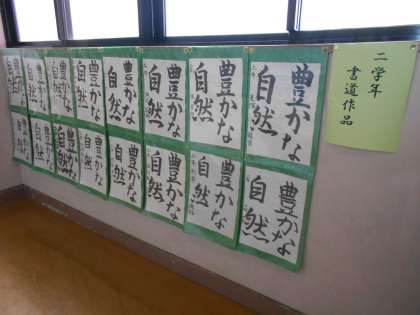 二学年
書道作品
豊かな
自然
豊かな
自然
豊かな
自然
豊かな
自然
豊かな
自然
豊かな
自然
豊かな
自然
豊かな
自然
豊かな
自然
豊かな
自然
豊かな
自然
豊かな
自然
豊かな
自然
豊かな
自然
豊かな
自然
豊かな
自然